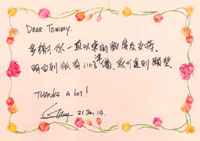 DEAR TOMMY,
多謝你一直以來的教導及支持。
明白到你有110%準備，就可達到願望
THANKS A LOT!
21 Jan 14.